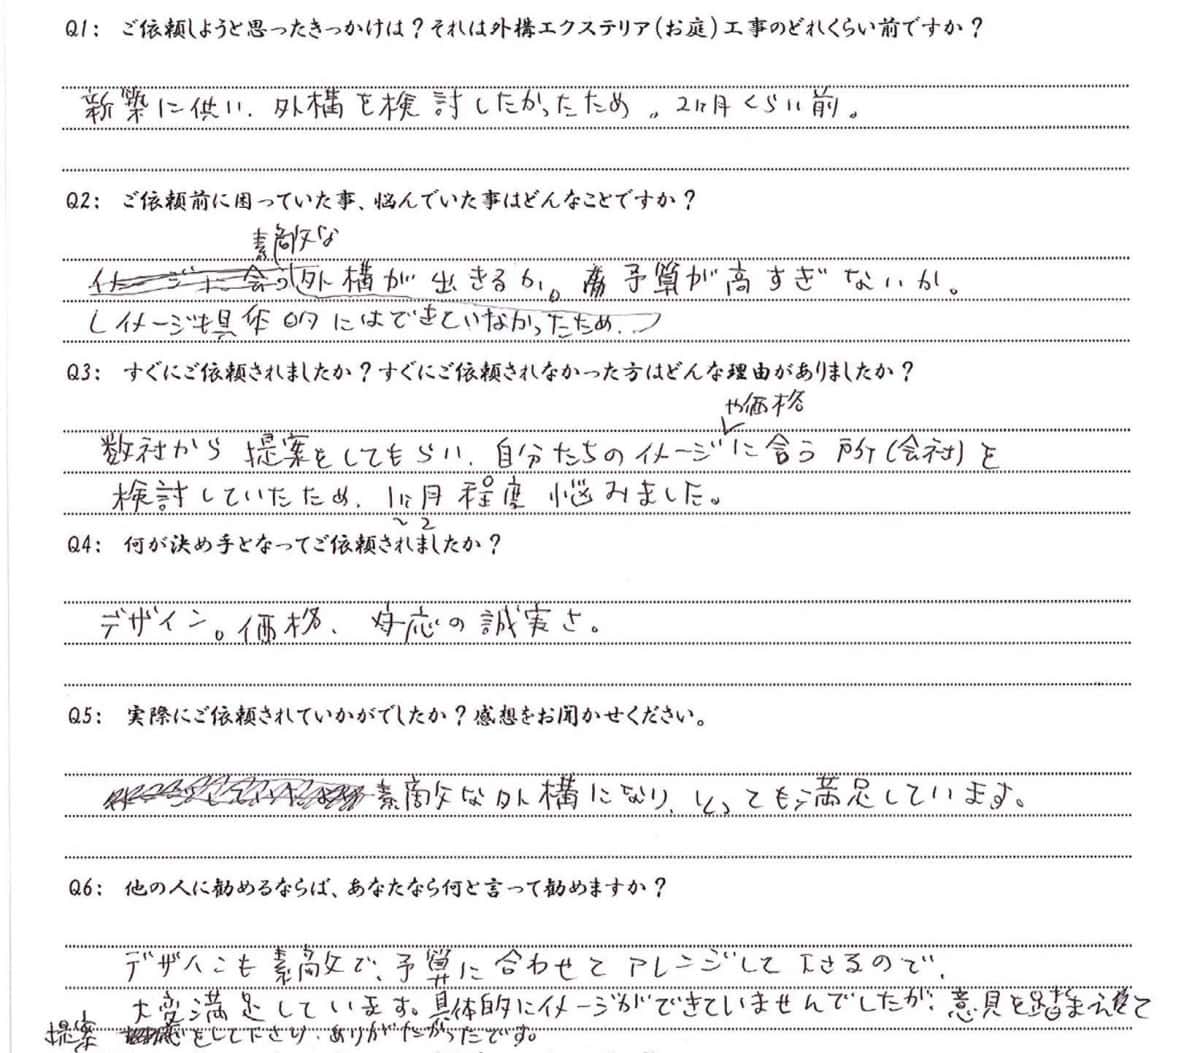 Q1: ご依頼しようと思ったきっかけは？それは外構エクステリア(お庭)工事のどれくらい前ですか？
新築に供い、外構を検討したかったため。2ヶ月くらい前。
Q2: ご依頼前に困っていた事、悩んでいた事はどんなことですか？
素敵な
外構が出きるか。予算が高すぎないか。
(イメージも具体的にはできていなかったため。)
Q3: すぐにご依頼されましたか？すぐにご依頼されなかった方はどんな理由がありましたか？
や価格
数社から提案をしてもらい、自分たちのイメージに合う所(会社)を
検討していたため、1ヶ月程度悩みました。
～2
Q4: 何が決め手となってご依頼されましたか？
デザイン。価格、対応の誠実さ。
Q5: 実際にご依頼されていかがでしたか？感想をお聞かせください。
素敵な外構になり、とっても満足しています。
Q6: 他の人に勧めるならば、あなたなら何と言って勧めますか？
デザインも素敵で、予算に合わせてアレンジして下さるので、
大変満足しています。具体的にイメージができていませんでしたが、意見を踏まえて
提案をして下さり、ありがたかったです。